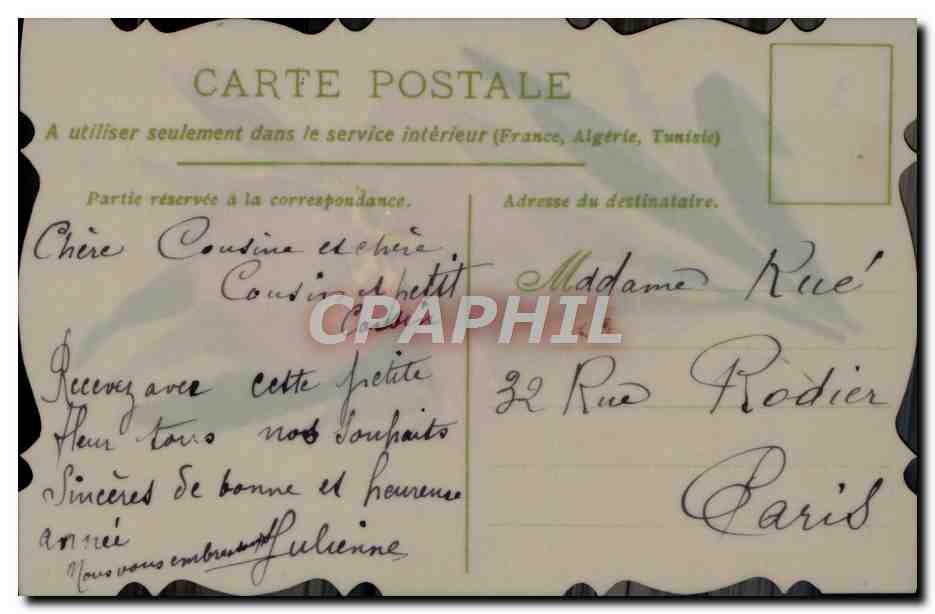 CARTE POSTALE
A utiliser seulement dans le service intérieur (France, Algérie, Tunisie)
Partie réservée à la correspondance.
Chère Cousine et chère
Cousin et petit
Cousin
Recevez avec cette petite
fleur tous nos souhaits
Sincères de bonne et heureuse
année
Nous vous embrassons Julienne
Adresse du destinataire.
Madame Rué
32 Rue Rodier
Paris
CPAPHIL